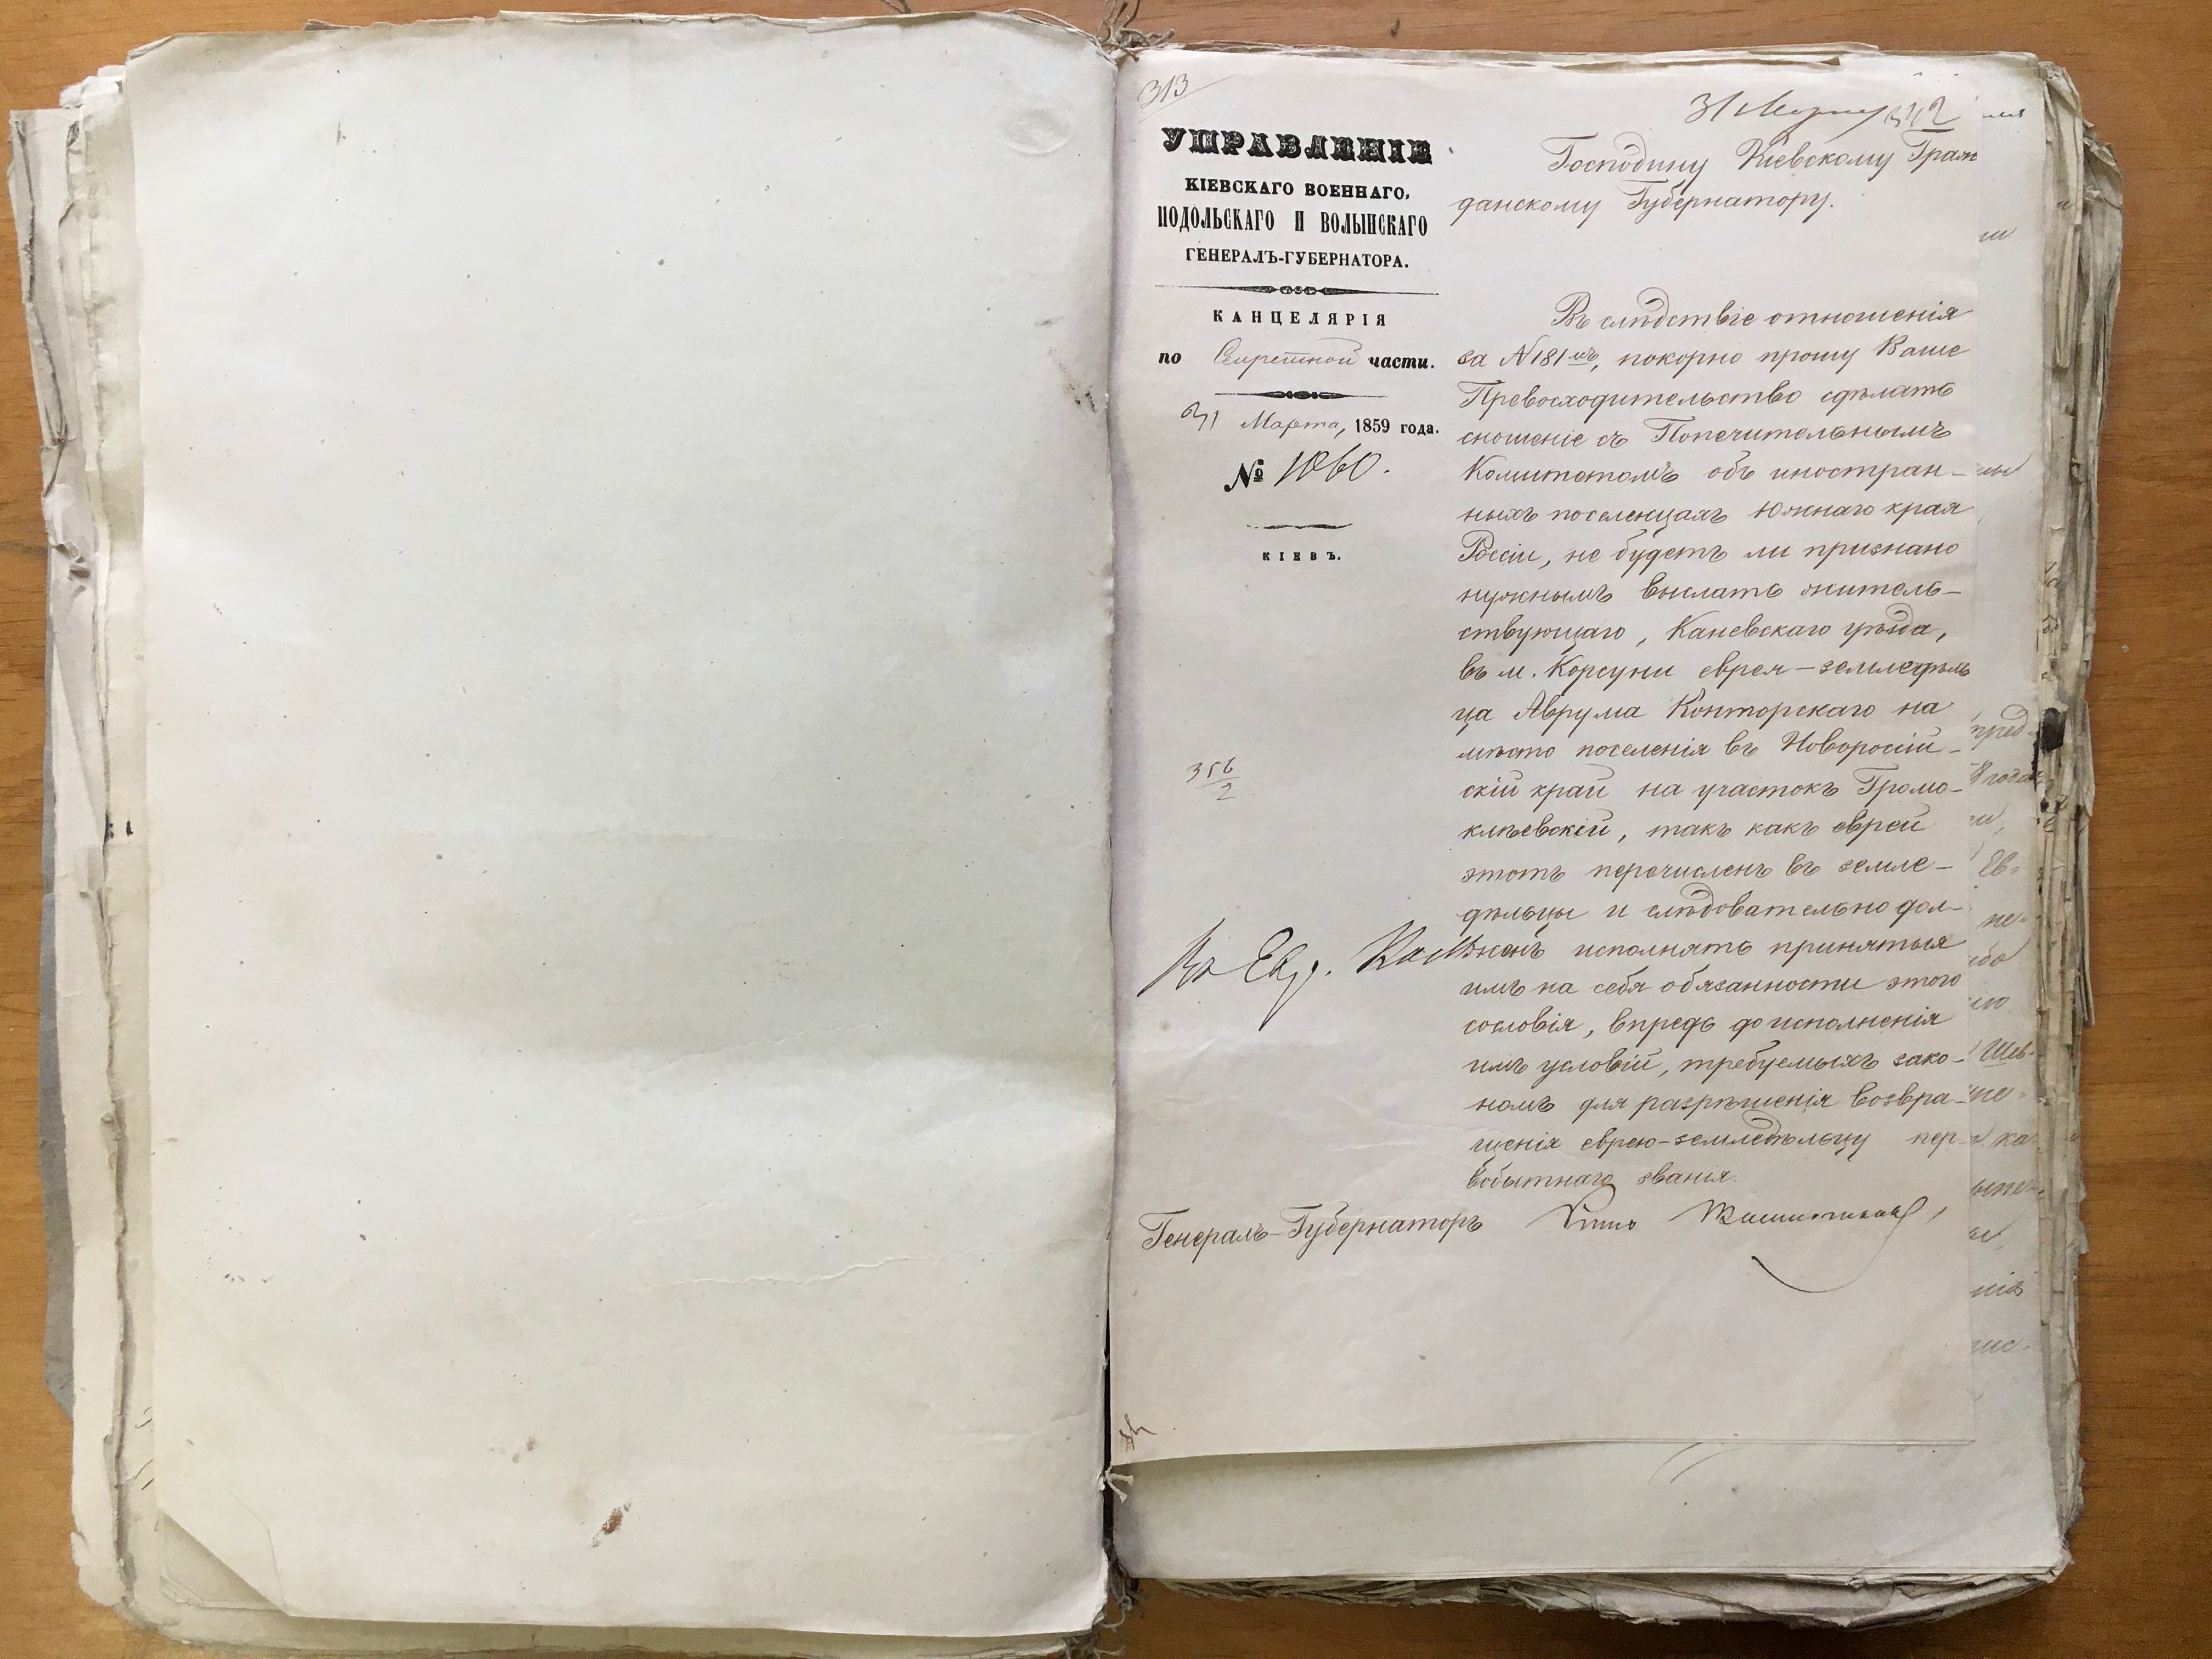 313
31 Марта 342
УПРАВЛЕНІЕ
КІЕВСКАГО ВОЕННАГО,
ПОДОЛЬСКАГО И ВОЛЫНСКАГО
ГЕНЕРАЛЪ-ГУБЕРНАТОРА.
КАНЦЕЛЯРІЯ
по Секретной части.
31 Марта, 1859 года.
№ 1060.
КІЕВЪ.
356/2
Господину Кіевскому Граж
данскому Губернатору.
Въ слѣдствіе отношенія
за N 181мъ, покорно прошу Ваше
Превосходительство сдѣлать
сношеніе съ Попечительнымъ
Комитетомъ объ иностран-
ныхъ поселенцахъ Южнаго края
Россіи, не будетъ ли признано
нужнымъ выслать житель-
ствующаго, Каневскаго уѣзда,
въ м. Корсуни еврея-земледѣль
ца Аврума Конторскаго на
мѣсто поселенія въ Новоросій-
скій край на участокъ Громо-
клѣевскій, такъ какъ еврей
этотъ перечисленъ въ земле-
дѣльцы и слѣдовательно дол-
женъ исполнять принятыя
имъ на себя обязанности этого
сословія, впредь до исполненія
имъ условій, требуемыхъ зако-
номъ для разрѣшенія возвра-
щенія еврею-земледѣльцу пер-
вобытнаго званія.
Генералъ-Губернаторъ